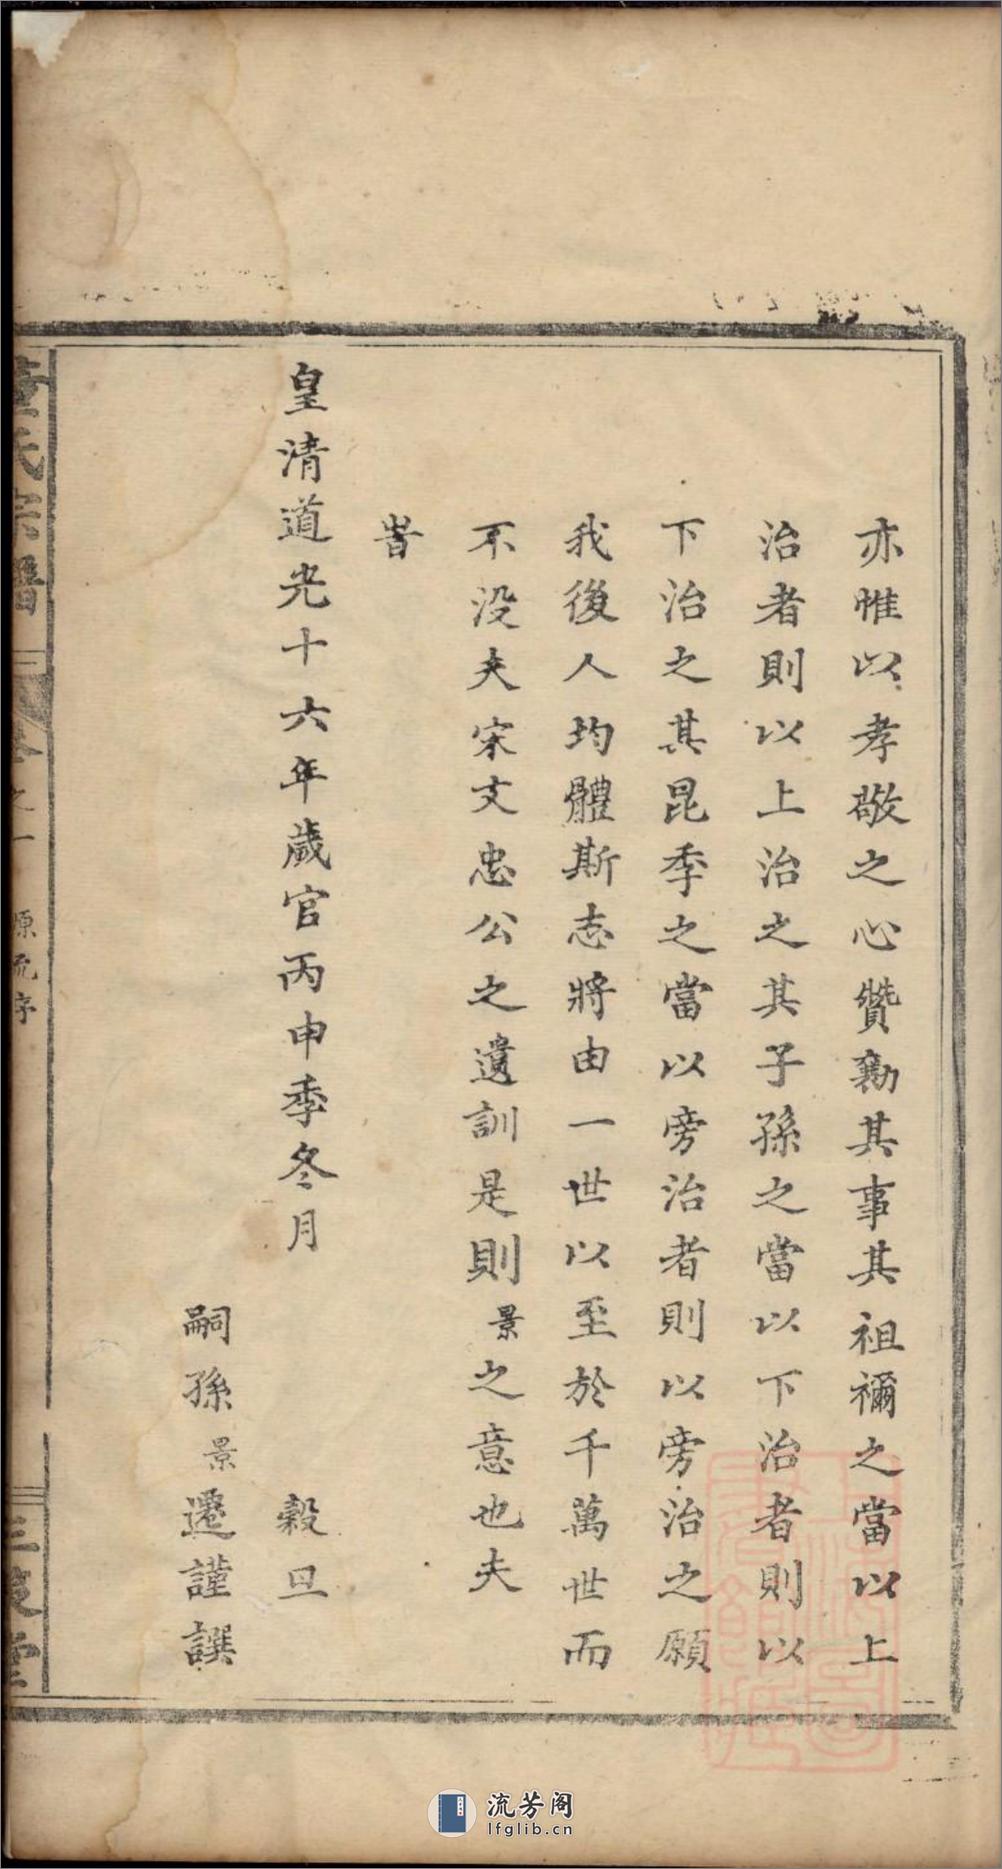 亦惟以孝敬之心贊勷其事其祖禰之當以上
治者則以上治之其子孫之當以下治者則以
下治之其昆季之當以旁治者則以旁治之願
我後人均體斯志將由一世以至於千萬世而
不没夫宋文忠公之遺訓是則景之意也夫
旹
皇清道光十六年歲官丙申季冬月 穀旦
嗣孫景遷謹譔
氏宗譜 卷之一 原流序 三
流芳阁
lfglib.cn